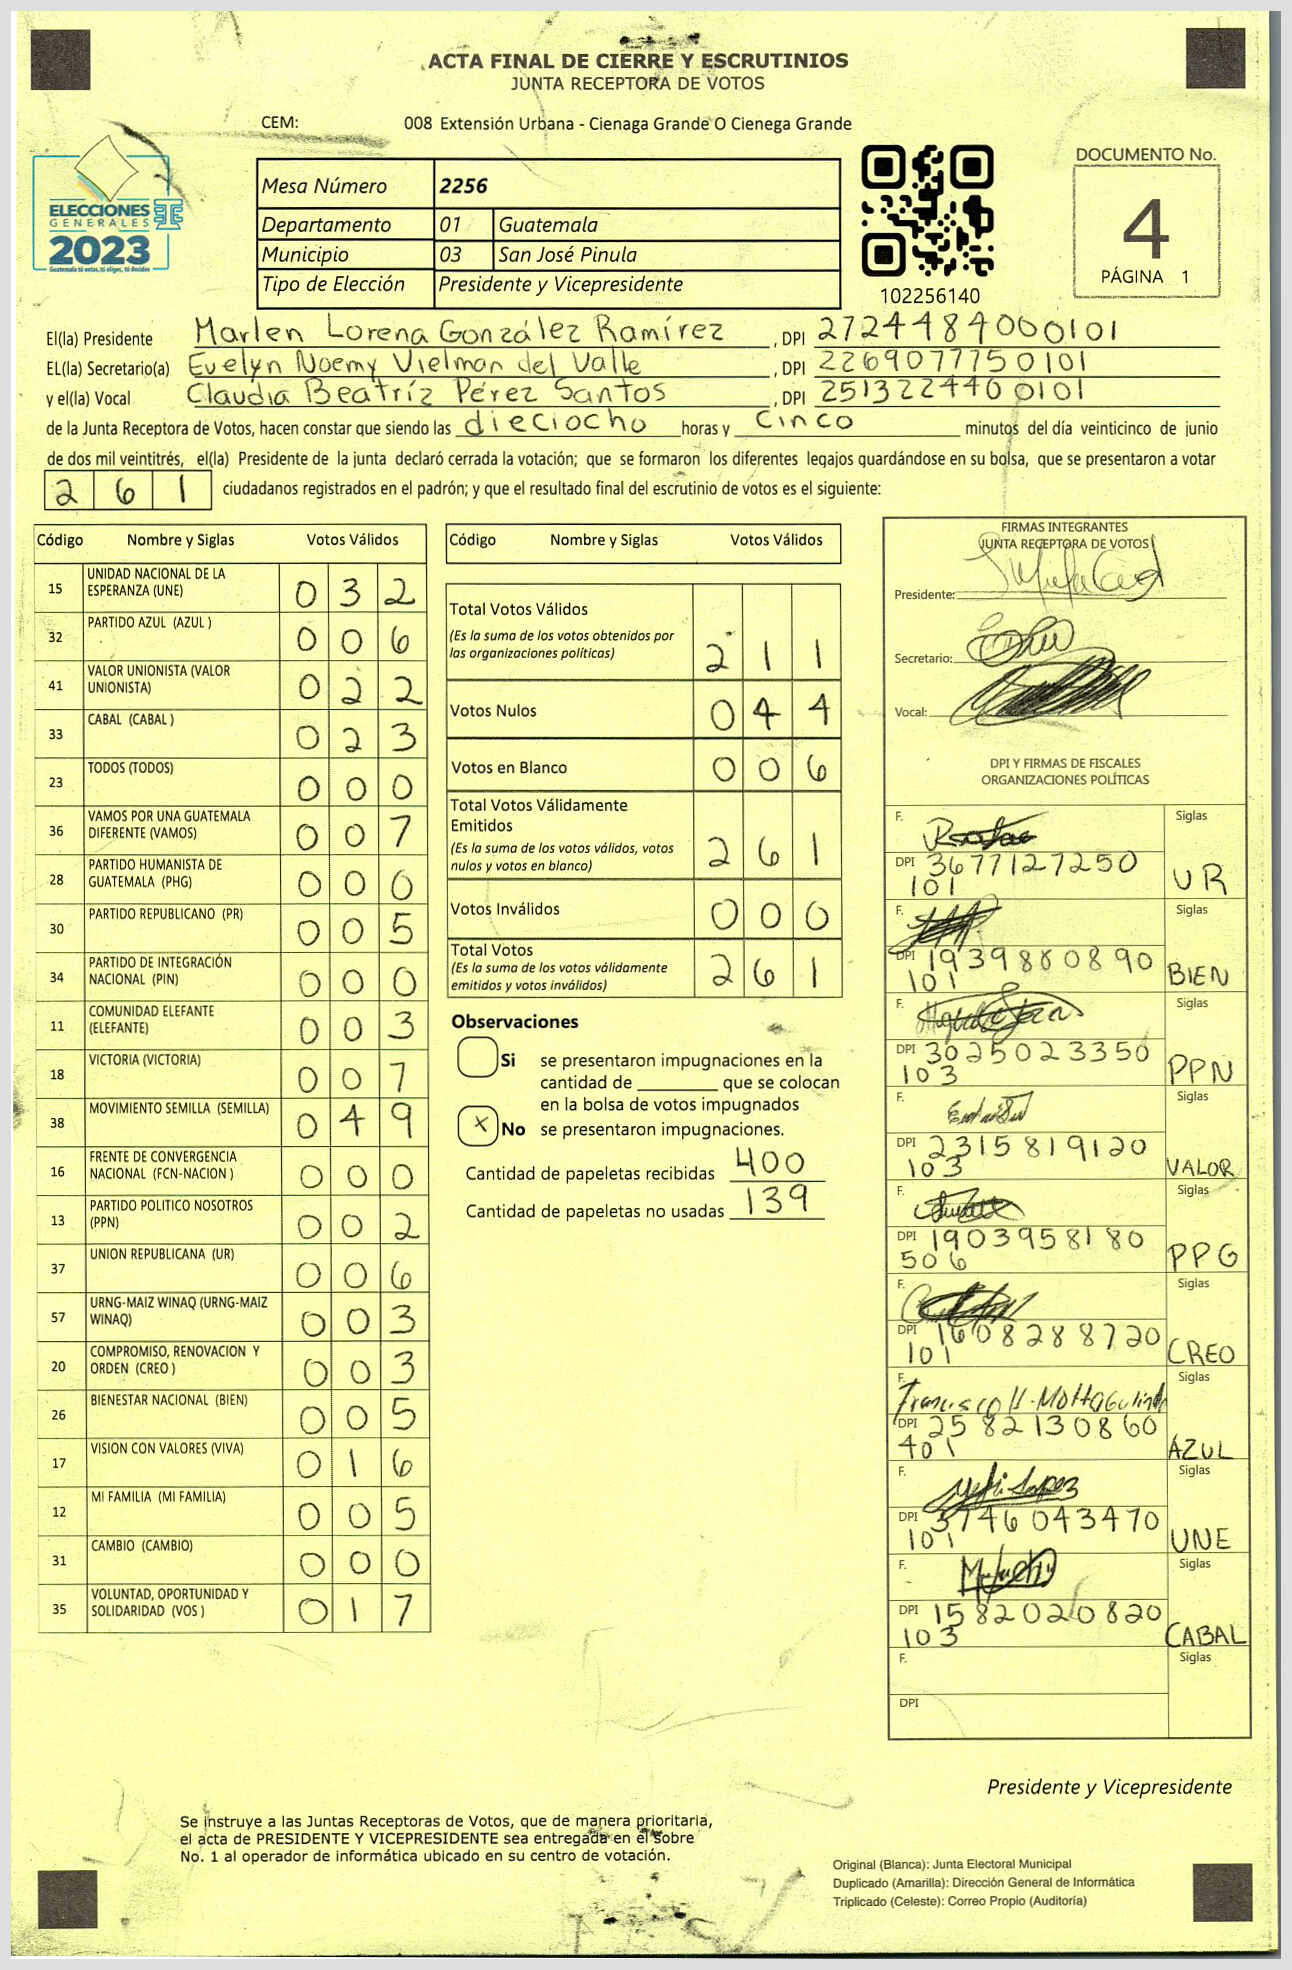 ACTA FINAL DE CIERRE Y ESCRUTINIOS
JUNTA RECEPTORA DE VOTOS
CEM: 008 Extensión Urbana - Cienaga Grande O Cienega Grande
ELECCIONES
GENERALES
2023
Guatemala tú votas, tú eliges, tú decides
Mesa Número 2256
Departamento 01 Guatemala
Municipio 03 San José Pinula
Tipo de Elección Presidente y Vicepresidente
102256140
DOCUMENTO No.
4
PÁGINA 1
El(la) Presidente Marlen Lorena González Ramírez, DPI 2724484000101
EL(la) Secretario(a) Evelyn Noemy Vielman del Valle, DPI 2269077750101
y el(la) Vocal Claudia Beatríz Pérez Santos, DPI 2513224400101
de la Junta Receptora de Votos, hacen constar que siendo las dieciocho horas y cinco minutos del día veinticinco de junio
de dos mil veintitrés, el(la) Presidente de la junta declaró cerrada la votación; que se formaron los diferentes legajos guardándose en su bolsa, que se presentaron a votar
2 6 1 ciudadanos registrados en el padrón; y que el resultado final del escrutinio de votos es el siguiente:
Código Nombre y Siglas Votos Válidos
15 UNIDAD NACIONAL DE LA
ESPERANZA (UNE) 0 3 2
32 PARTIDO AZUL (AZUL ) 0 0 6
41 VALOR UNIONISTA (VALOR
UNIONISTA) 0 2 2
33 CABAL (CABAL ) 0 2 3
23 TODOS (TODOS) 0 0 0
36 VAMOS POR UNA GUATEMALA
DIFERENTE (VAMOS) 0 0 7
28 PARTIDO HUMANISTA DE
GUATEMALA (PHG) 0 0 0
30 PARTIDO REPUBLICANO (PR) 0 0 5
34 PARTIDO DE INTEGRACIÓN
NACIONAL (PIN) 0 0 0
11 COMUNIDAD ELEFANTE
(ELEFANTE) 0 0 3
18 VICTORIA (VICTORIA) 0 0 7
38 MOVIMIENTO SEMILLA (SEMILLA) 0 4 9
16 FRENTE DE CONVERGENCIA
NACIONAL (FCN-NACION ) 0 0 0
13 PARTIDO POLITICO NOSOTROS
(PPN) 0 0 2
37 UNION REPUBLICANA (UR) 0 0 6
57 URNG-MAIZ WINAQ (URNG-MAIZ
WINAQ) 0 0 3
20 COMPROMISO, RENOVACION Y
ORDEN (CREO ) 0 0 3
26 BIENESTAR NACIONAL (BIEN) 0 0 5
17 VISION CON VALORES (VIVA) 0 1 6
12 MI FAMILIA (MI FAMILIA) 0 0 5
31 CAMBIO (CAMBIO) 0 0 0
35 VOLUNTAD, OPORTUNIDAD Y
SOLIDARIDAD (VOS ) 0 1 7
Código Nombre y Siglas Votos Válidos
Total Votos Válidos
(Es la suma de los votos obtenidos por
las organizaciones políticas) 2 1 1
Votos Nulos 0 4 4
Votos en Blanco 0 0 6
Total Votos Válidamente
Emitidos
(Es la suma de los votos válidos, votos
nulos y votos en blanco) 2 6 1
Votos Inválidos 0 0 0
Total Votos
(Es la suma de los votos válidamente
emitidos y votos inválidos) 2 6 1
Observaciones
Si se presentaron impugnaciones en la
cantidad de ________ que se colocan
en la bolsa de votos impugnados
X No se presentaron impugnaciones.
Cantidad de papeletas recibidas 400
Cantidad de papeletas no usadas 139
FIRMAS INTEGRANTES
JUNTA RECEPTORA DE VOTOS
Presidente:
Secretario:
Vocal:
DPI Y FIRMAS DE FISCALES
ORGANIZACIONES POLÍTICAS
F. Siglas
DPI 3677127250
101 UR
F. Siglas
DPI 1939880890
101 BIEN
F. Siglas
DPI 3025023350
103 PPN
F. Siglas
DPI 2315819120
103 VALOR
F. Siglas
DPI 1903958180
506 PPG
F. Siglas
DPI 1608288720
101 CREO
F. Francisco Siglas
DPI 2582130860
401 AZUL
F. Siglas
DPI 3746043470
101 UNE
F. Siglas
DPI 1582020820
103 CABAL
F. Siglas
DPI
Presidente y Vicepresidente
Se instruye a las Juntas Receptoras de Votos, que de manera prioritaria,
el acta de PRESIDENTE Y VICEPRESIDENTE sea entregada en el sobre
No. 1 al operador de informática ubicado en su centro de votación.
Original (Blanca): Junta Electoral Municipal
Duplicado (Amarilla): Dirección General de Informática
Triplicado (Celeste): Correo Propio (Auditoría)